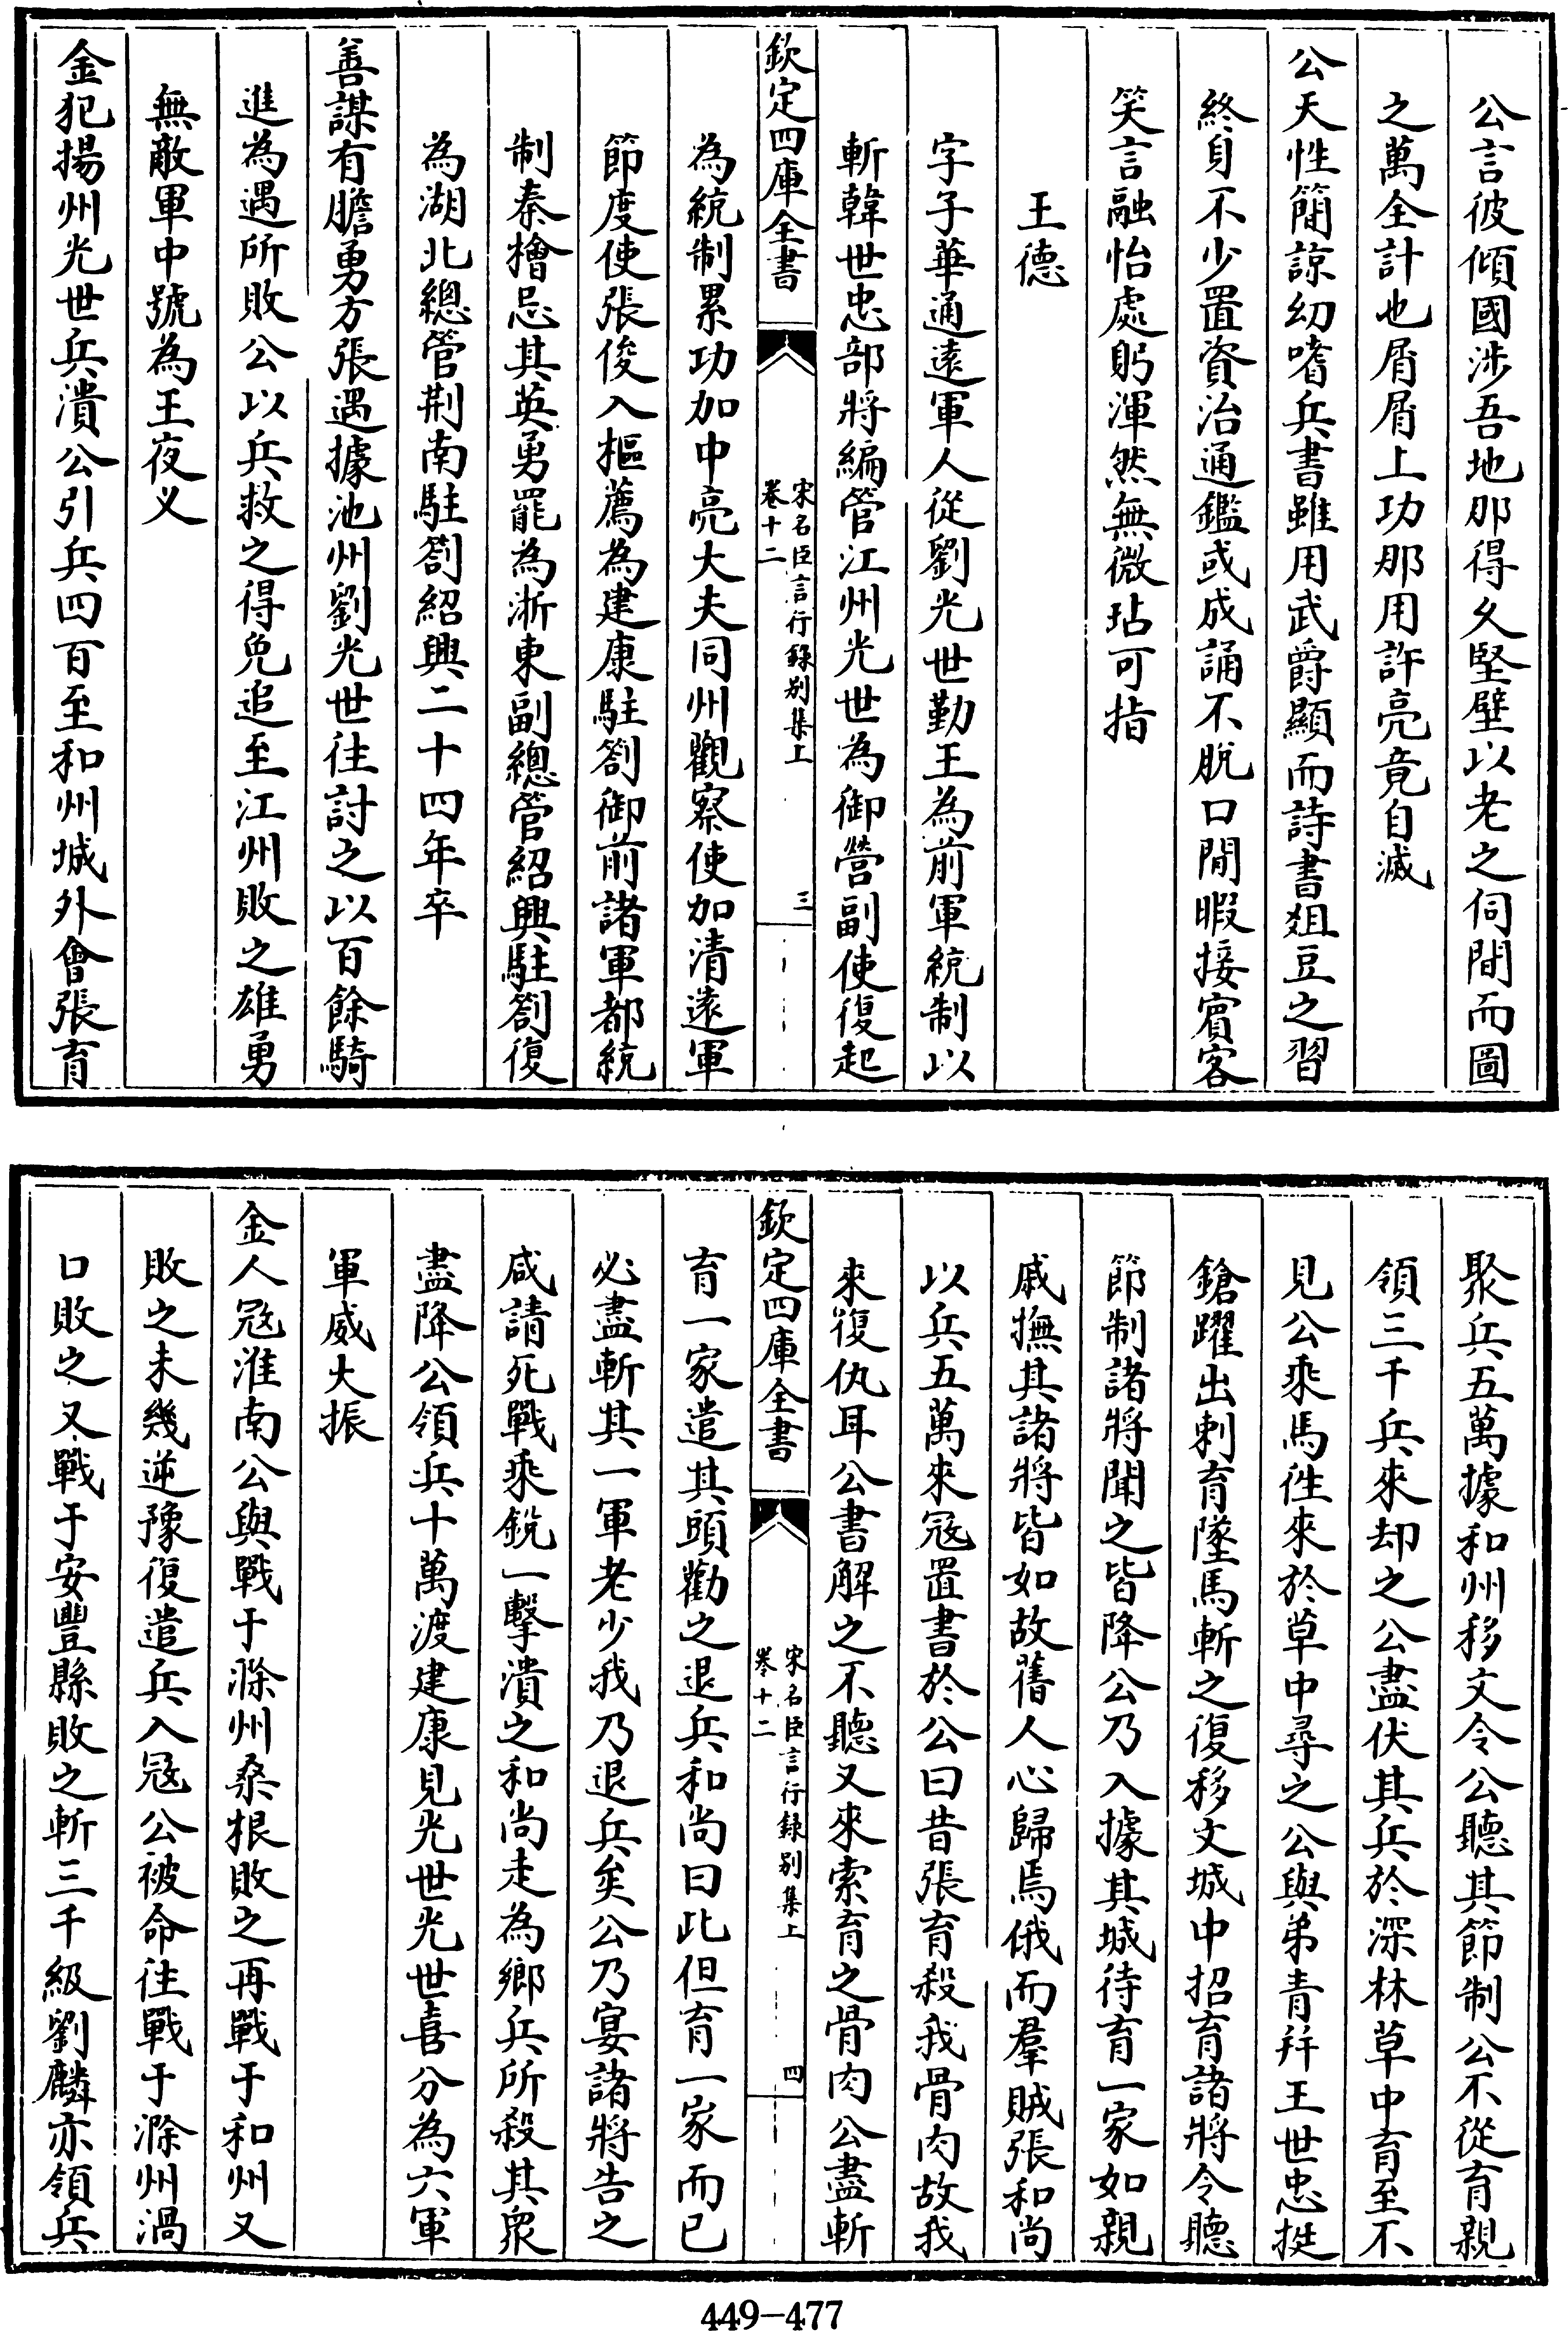 公言彼傾國涉吾地那得久堅壁以老之伺間而圖
之萬全計也屑屑上功那用許亮竟自滅
公天性簡諒幼嗜兵書雖用武爵顯而詩書爼豆之習
終身不少置資治通鑑或成誦不脫口閒暇接賓客
笑言融怡處躬渾然無微玷可指
王德
字子華通遠軍人從劉光世勤王為前軍統制以
斬韓世忠部將編管江州光世為御營副使復起
欽定四庫全書
宋名臣言行錄別集上
卷十二
三
為統制累功加中亮大夫同州觀察使加清遠軍
節度使張俊入樞薦為建康駐劄御前諸軍都統
制秦檜忌其英勇罷為浙東副總管紹興駐劄復
為湖北總管荆南駐劄紹興二十四年卒
善謀有膽勇方張遇據池州劉光世往討之以百餘騎
進為遇所敗公以兵救之得免追至江州敗之雄勇
無敵軍中號為王夜义
金犯揚州光世兵潰公引兵四百至和州城外會張育
聚兵五萬據和州移文令公聽其節制公不從育親
領三千兵來却之公盡伏其兵於深林草中育至不
見公乘馬徃來於草中尋之公與弟青并王世忠挺
鎗躍出刺育墜馬斬之復移文城中招育諸將令聽
節制諸將聞之皆降公乃入據其城待育一家如親
戚撫其諸將皆如故舊人心歸焉俄而羣賊張和尚
以兵五萬來冦置書於公曰昔張育殺我骨肉故我
來復仇耳公書解之不聽又來索育之骨肉公盡斬
欽定四庫全書
宋名臣言行錄別集上
卷十二
四
育一家遣其頭勸之退兵和尚曰此但育一家而已
必盡斬其一軍老少我乃退兵矣公乃宴諸將告之
咸請死戰乘銳一擊潰之和尚走為鄉兵所殺其衆
盡降公領兵十萬渡建康見光世光世喜分為六軍
軍威大振
金人冦淮南公與戰于滁州桑根敗之再戰于和州又
敗之未幾逆豫復遣兵入冦公被命往戰于滁州渦
口敗之又戰于安豐縣敗之斬三千級劉麟亦領兵
449-477